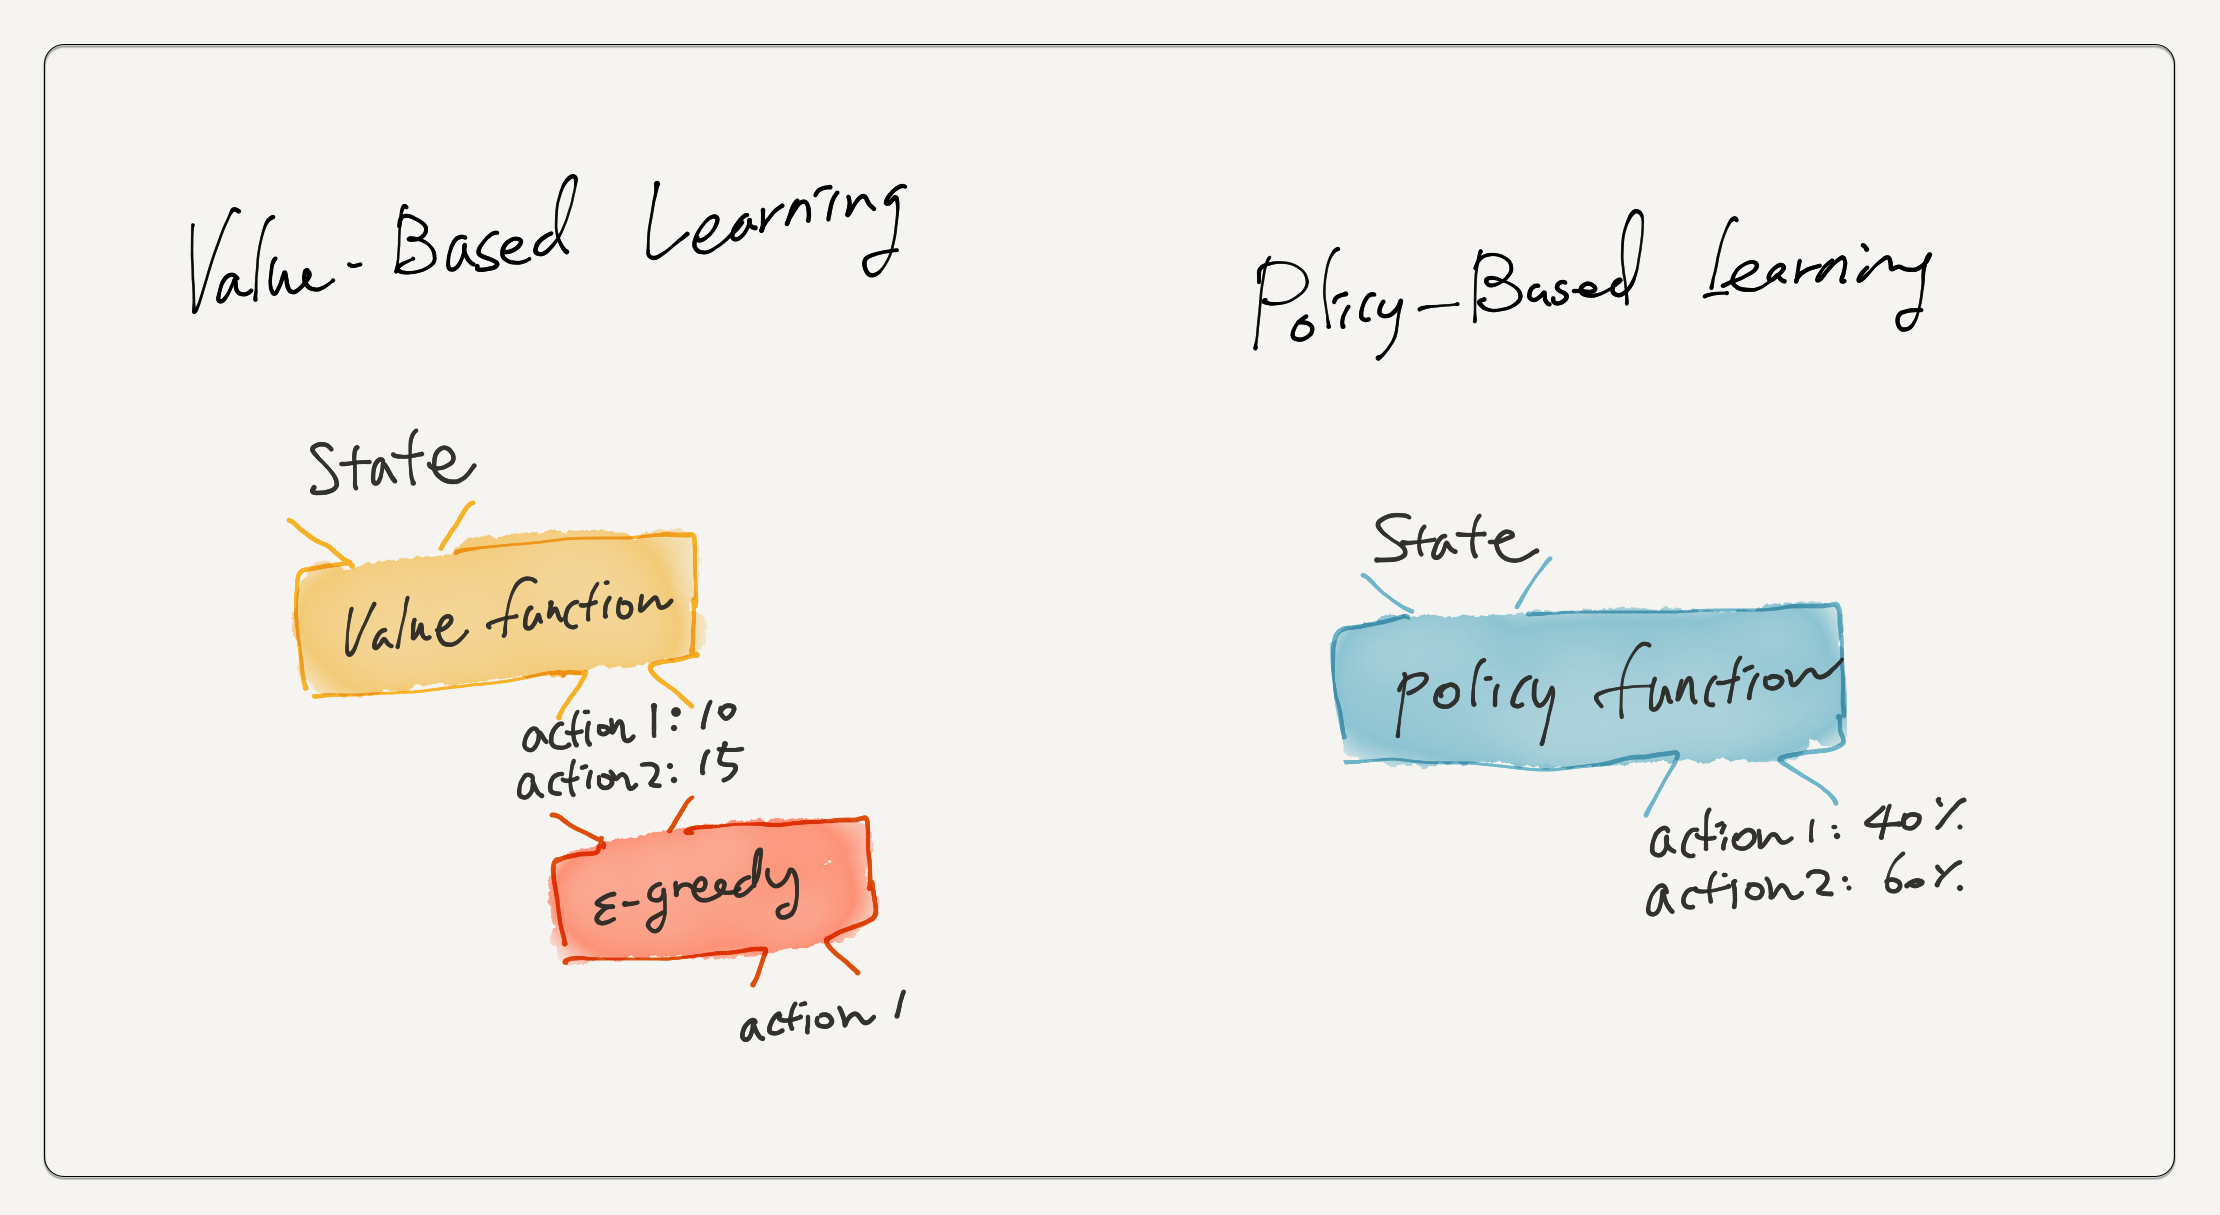 Value-Based Learning
State
Value function
action 1: 10
action 2: 15
ε-greedy
action 1
Policy-Based Learning
State
policy function
action 1: 40%
action 2: 60%